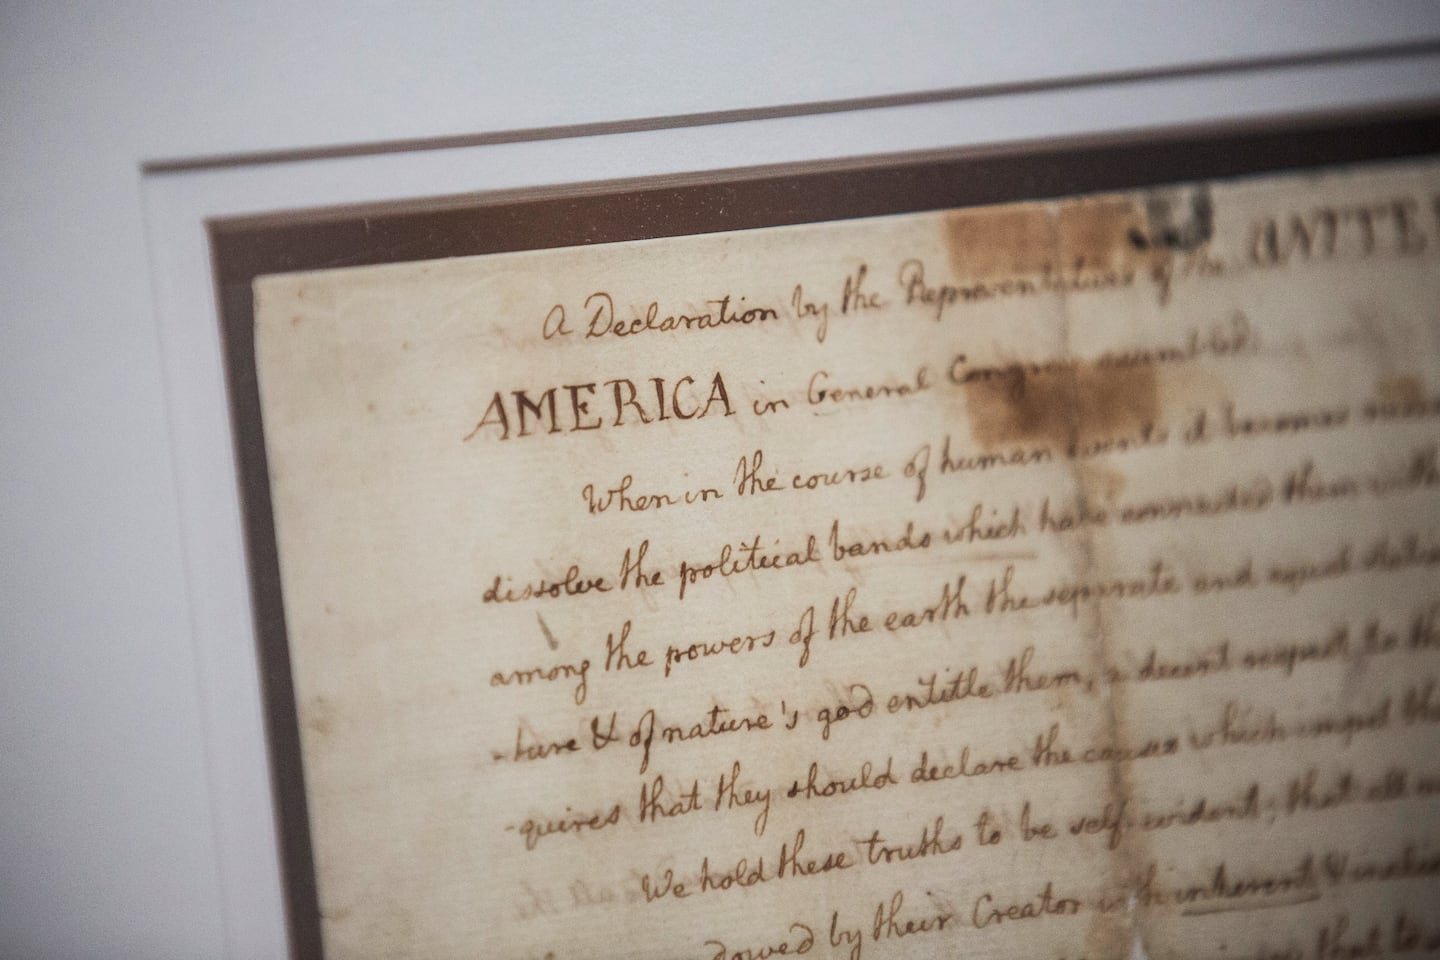 A Declaration by the Representatives of the UNITE
AMERICA in General Congress assembled
When in the course of human events it becomes
dissolve the political bands which have connected them with
among the powers of the earth the separate and equal station
-ture & of nature's god entitle them, a decent respect to the
-quires that they should declare the causes which impel the
We hold these truths to be self-evident; that all
dowed by their Creator with inherent &
that to